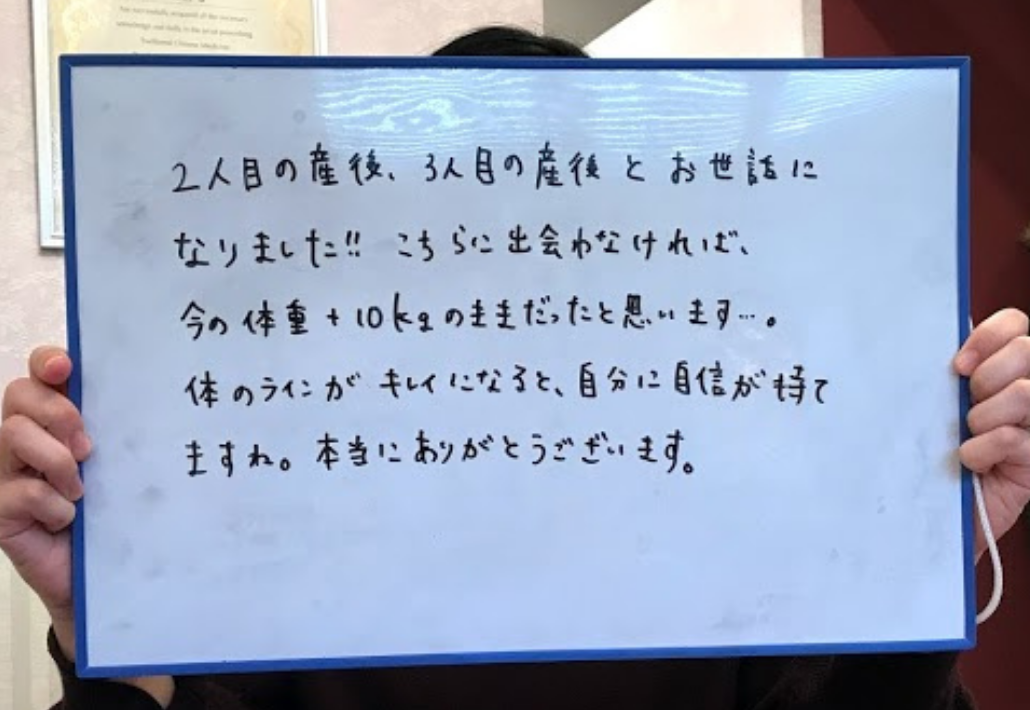 has successfully acquired all the necessary
knowledge and skills in the art of practising
Traditional Chinese Medicine
2人目の産後、3人目の産後とお世話に
なりました!! こちらに出会わなければ、
今の体重+10kgのままだったと思います…。
体のラインがキレイになると、自分に自信が持て
ますね。本当にありがとうございます。